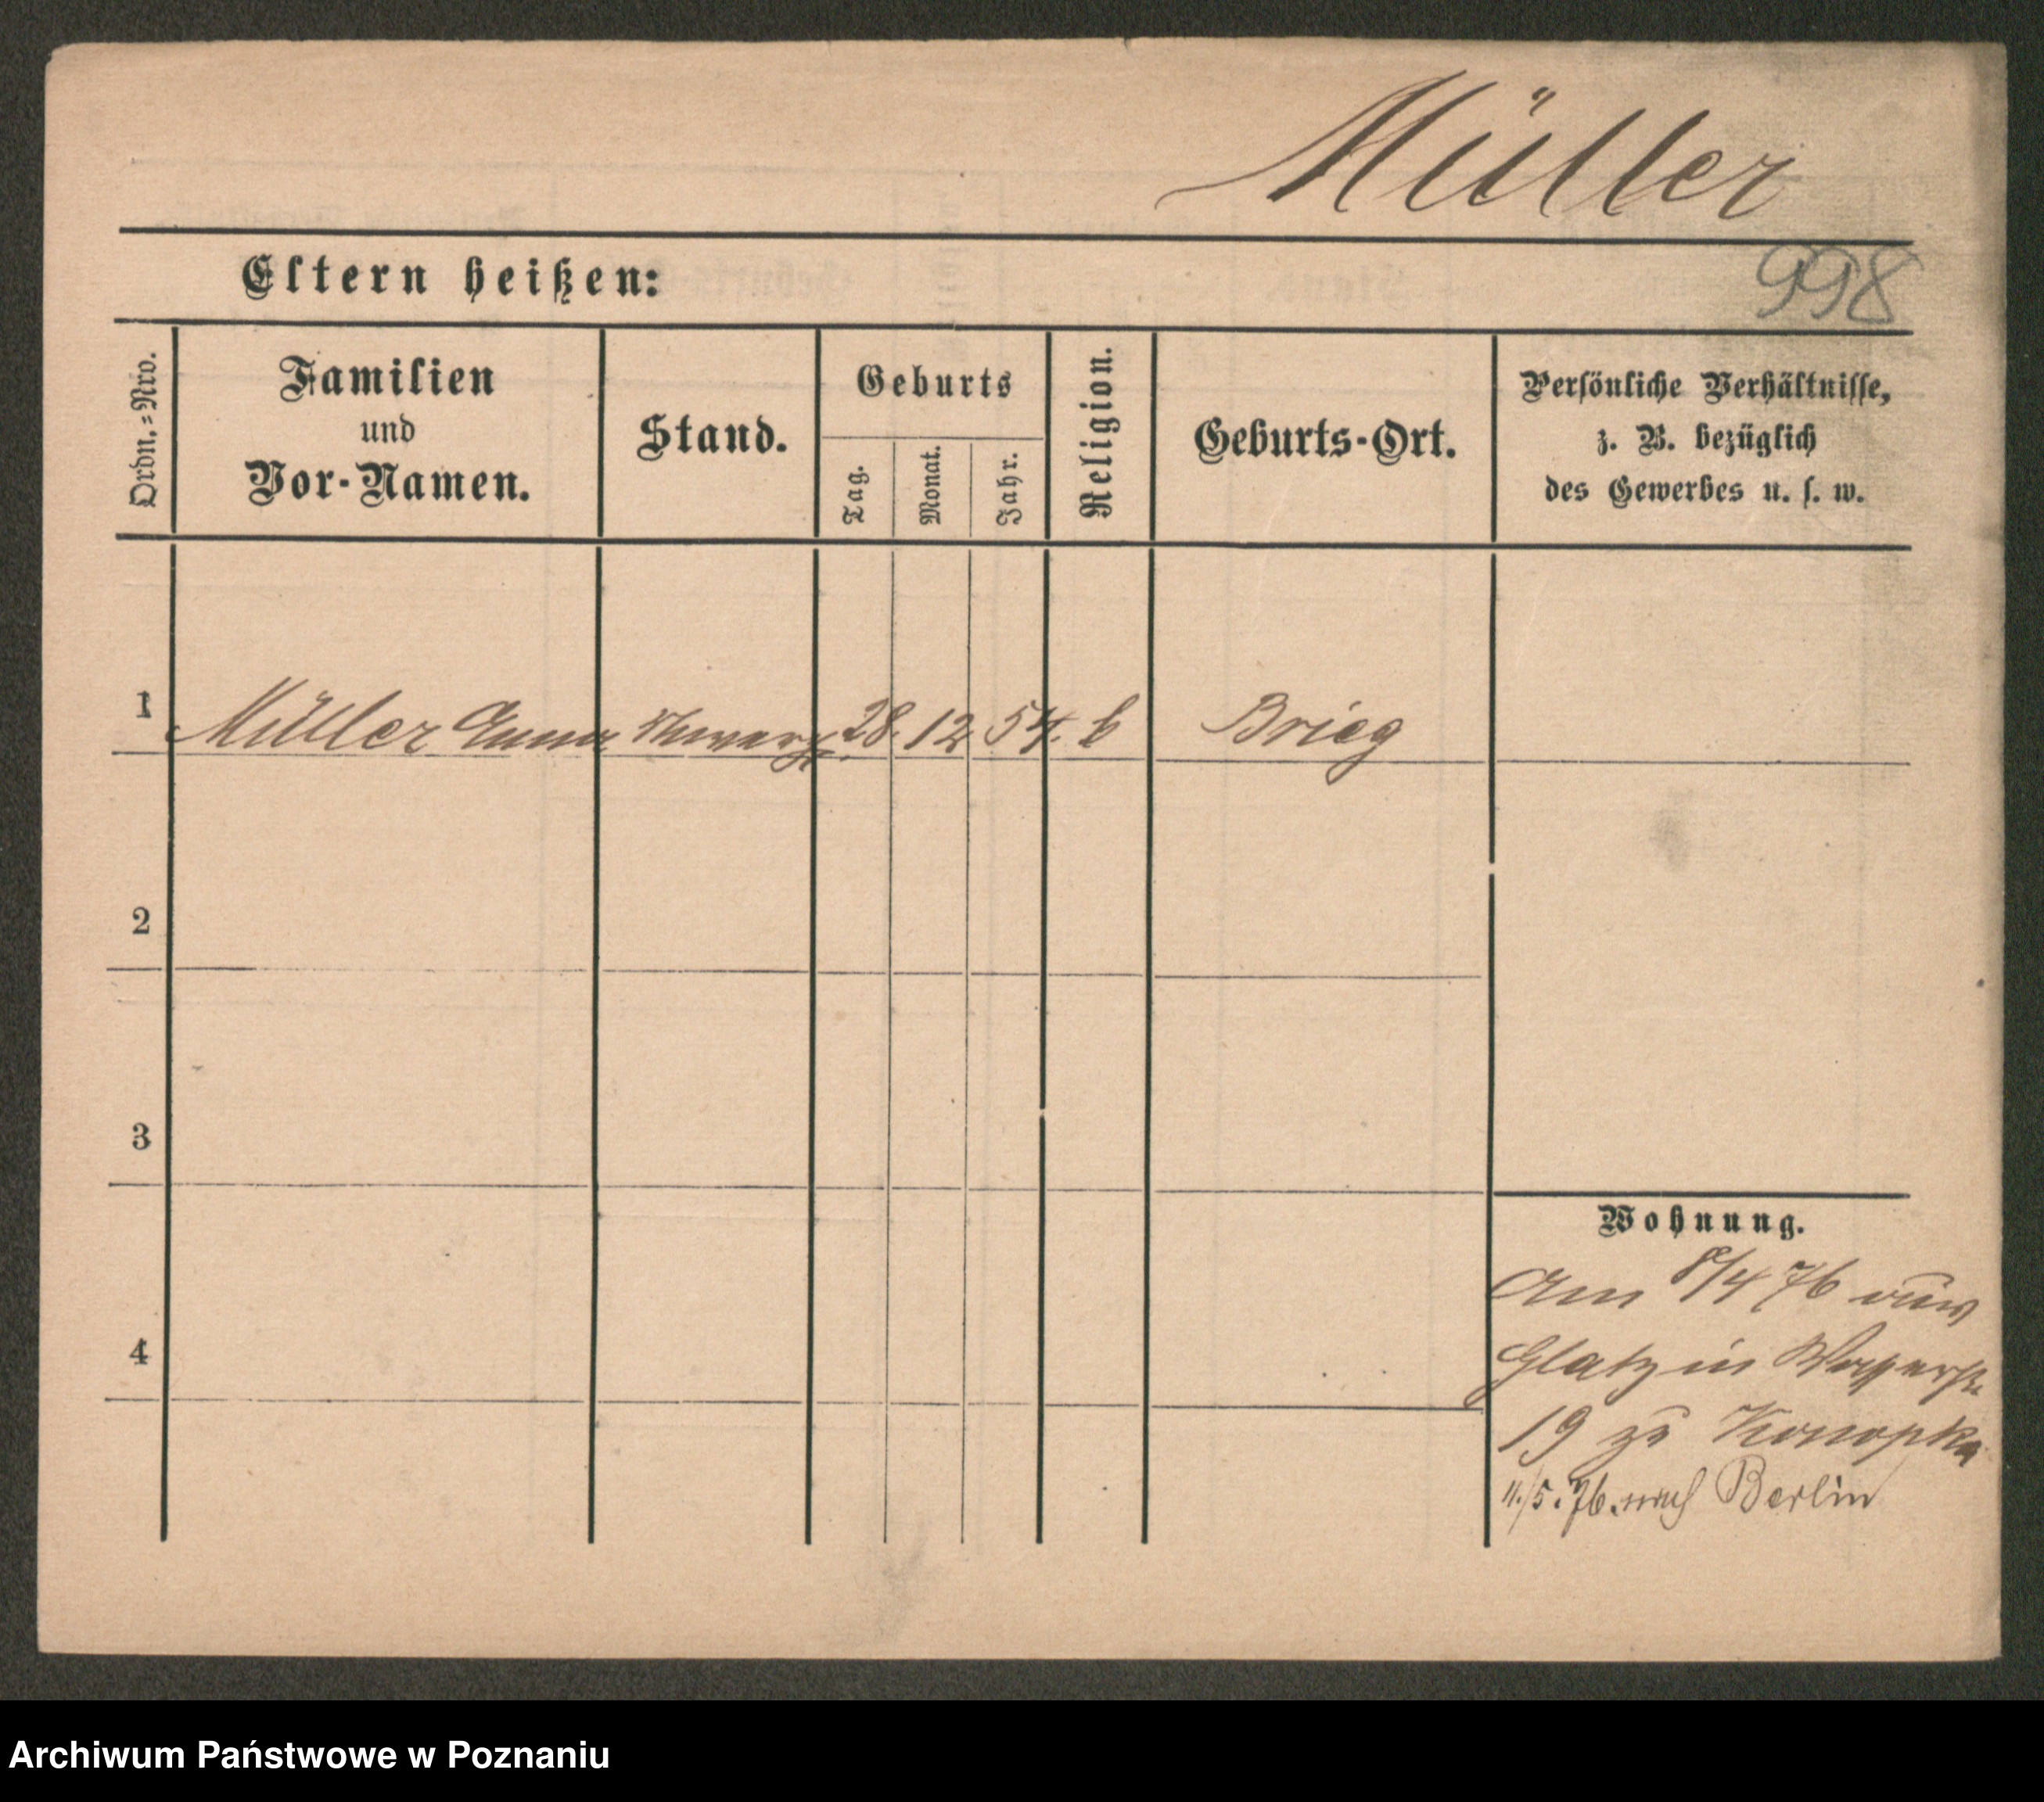 Müller
Eltern heißen:
998
Ordn.=Nro.
Familien
und
Vor-Namen.
Stand.
Geburts
Tag.
Monat.
Jahr.
Religion.
Geburts-Ort.
Persönliche Verhältnisse,
z. B. bezüglich
des Gewerbes u. s. w.
1 Müller Anna 28. 12 54. Brieg
2
3
4
Wohnung.
Am 8/4 76 aus
Glatz in Wasserstr.
19 zu Konopka
11./5. 76. nach Berlin
Archiwum Państwowe w Poznaniu